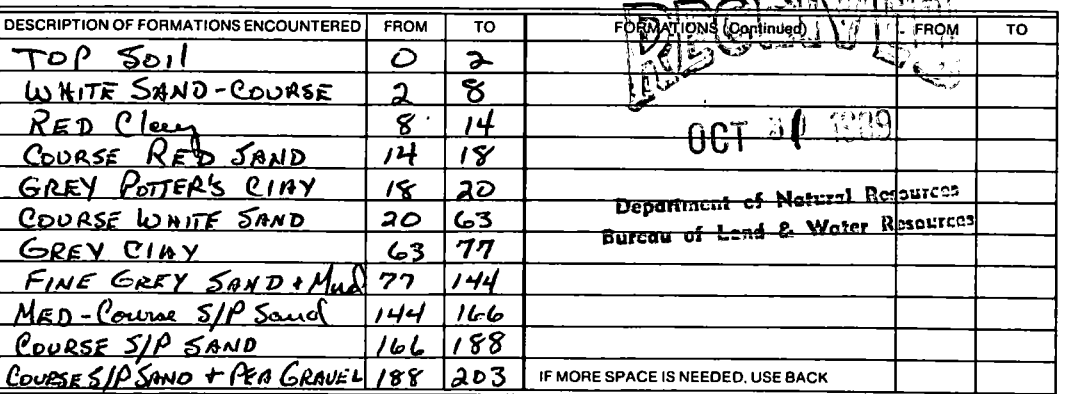 DESCRIPTION OF FORMATIONS ENCOUNTERED FROM TO FORMATIONS (Continued) FROM TO
TOP Soil 0 2
WHITE SAND-COURSE 2 8
RED Clay 8 14
COURSE RED SAND 14 18
GREY POTTER'S ClAY 18 20
COURSE WHITE SAND 20 63
GREY ClAY 63 77
FINE GREY SAND + Mud 77 144
MED-Course S/P Sand 144 166
COURSE S/P SAND 166 188
COURSE S/P SAND + PEA GRAVEL 188 203
IF MORE SPACE IS NEEDED, USE BACK
RECEIVED
OCT 1989
Department of Natural Resources
Bureau of Land & Water Resources